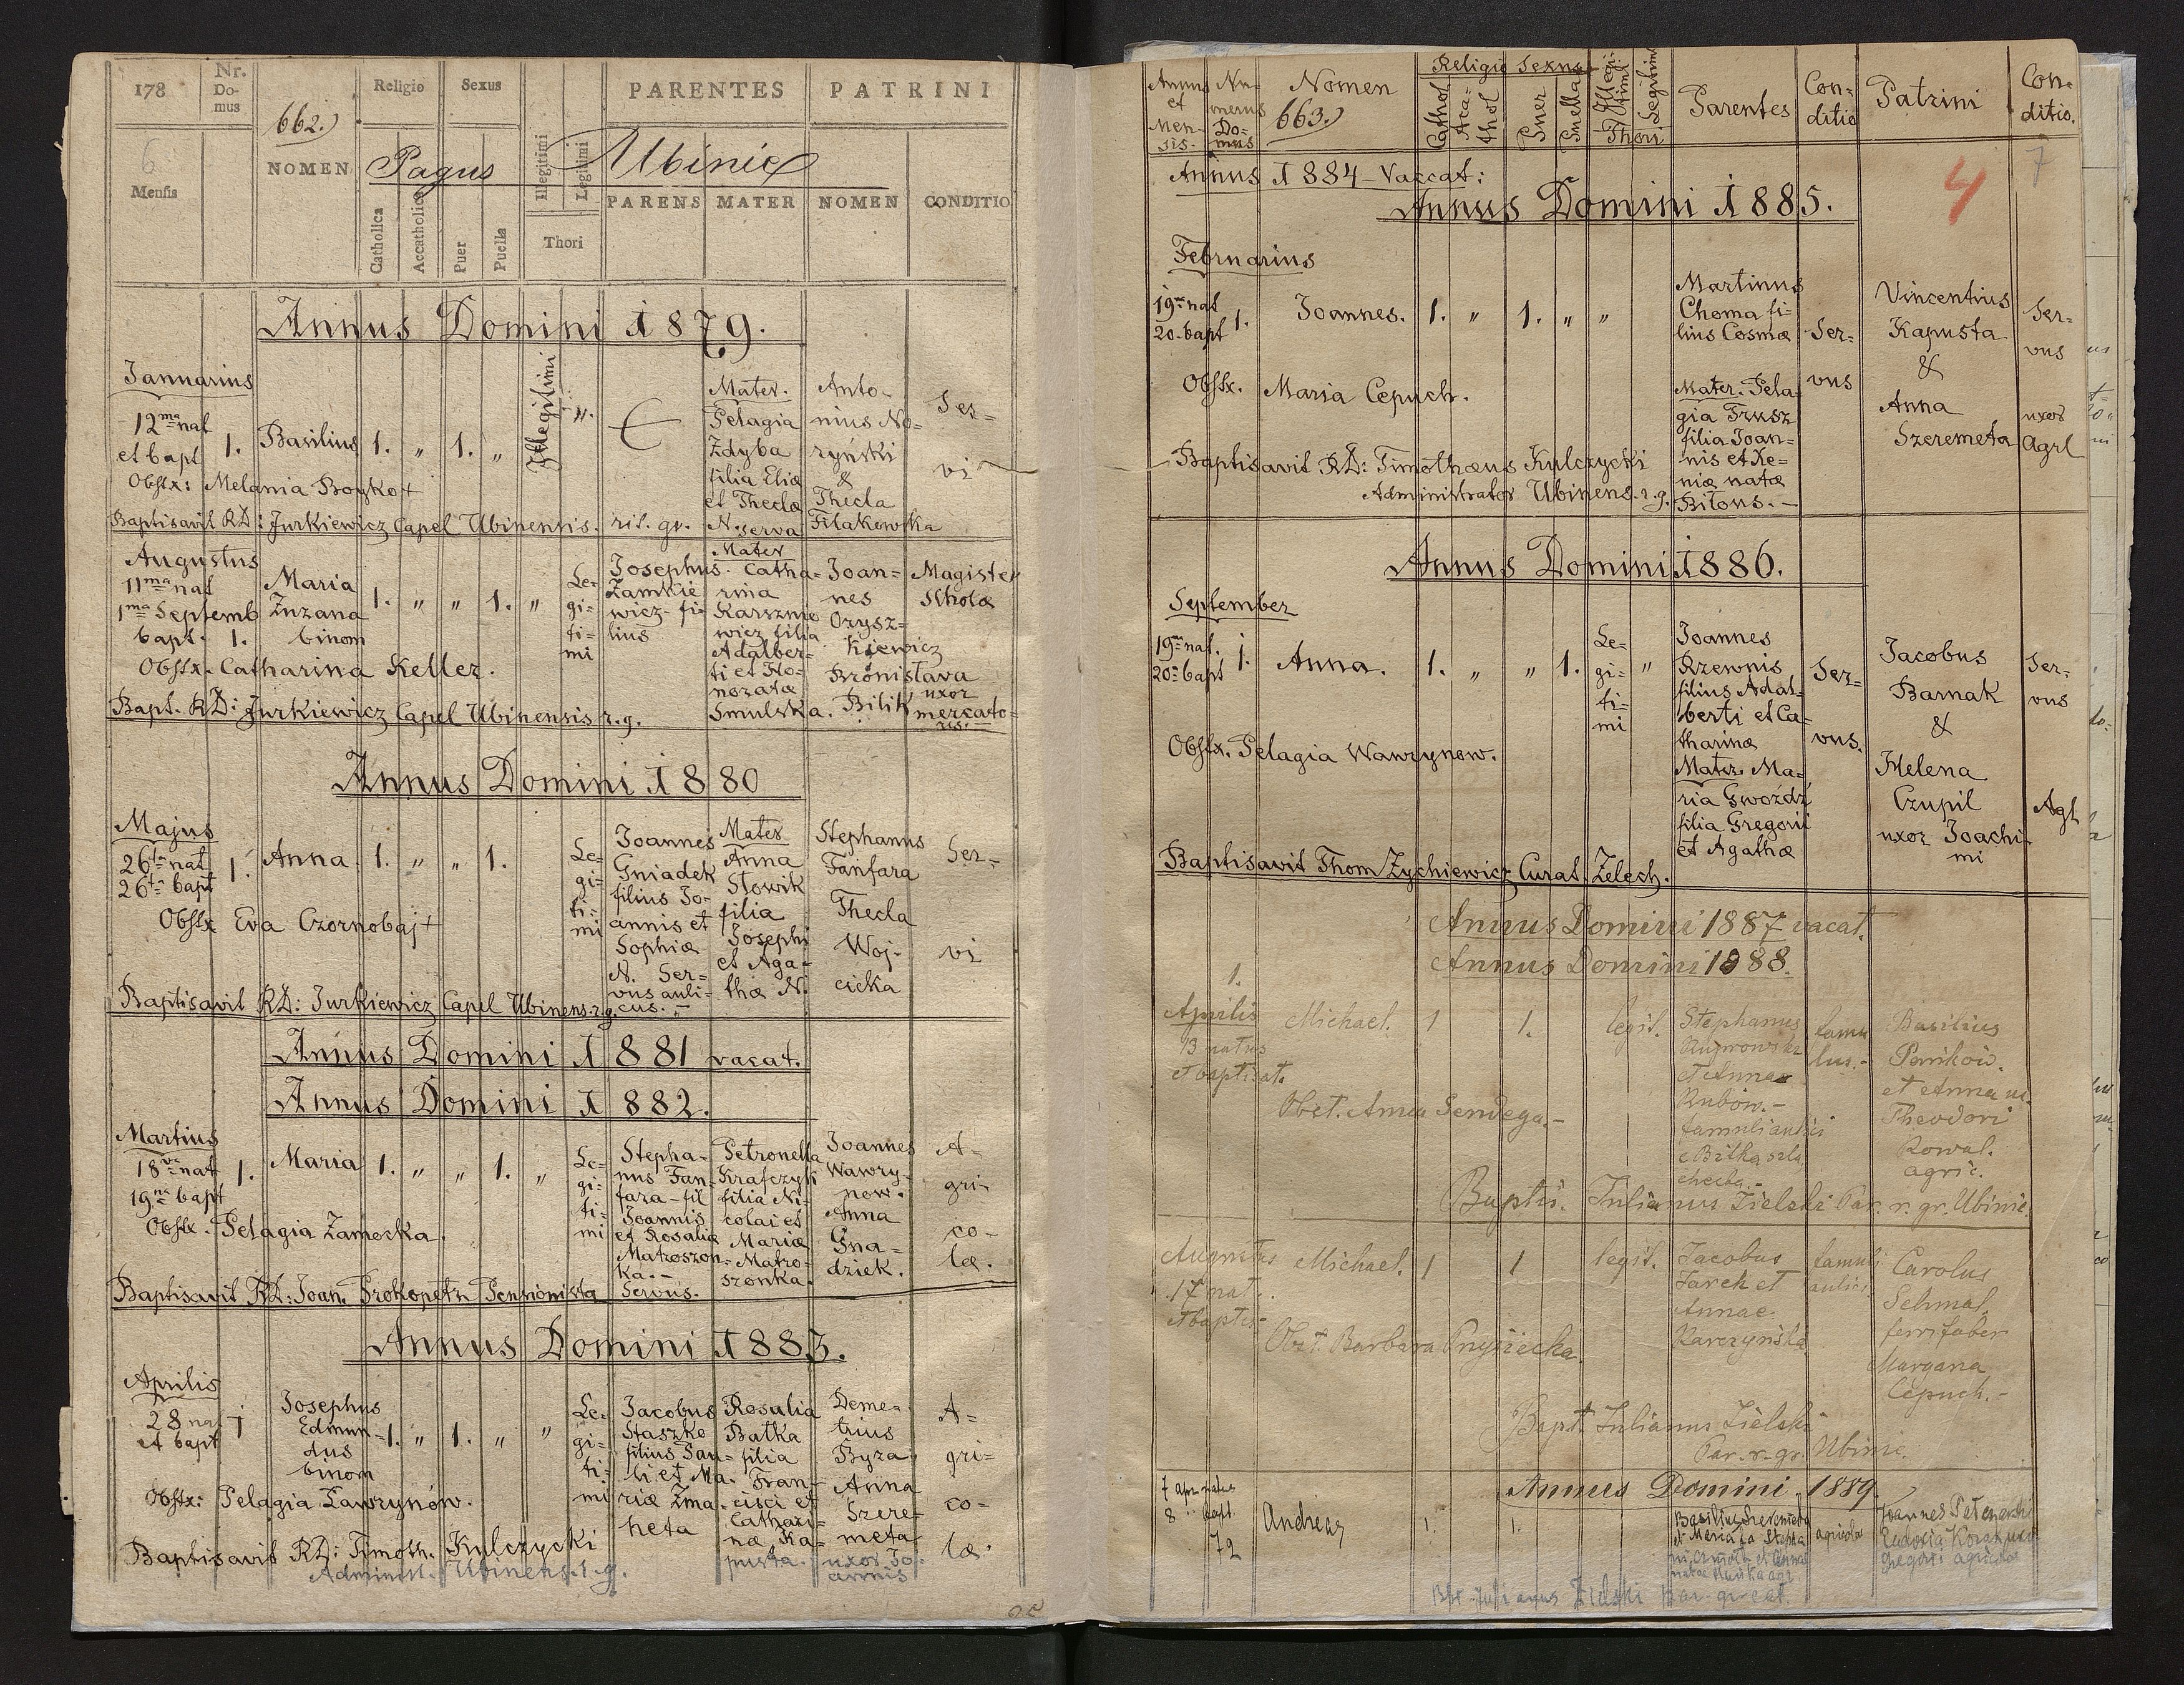 178
Nr. Domus
662.)
Religio
Sexus
PARENTES
PATRINI
6
Mensis
NOMEN
Pagus Ubinie
Catholica
Accatholica
Puer
Puella
Illegitimi
Legitimi
Thori
PARENS
MATER
NOMEN
CONDITIO
Annus Domini 1879.
Januarius
12ma nat
et bapt
1.
Basilius
1. „ 1. „
Illegitimi
„.
Mater.
Pelagia
Zdyba
filia Eliæ
et Theclæ
N. serva
Anto-
nius No-
ryński
&
Thecla
Filakowska
Ser-
vi
Obstx: Melania Boyko+
Baptisavit RD: Jurkiewicz Capel Ubinensis. rit. gr.
Augustus
11ma nat
1ma Septemb
bapt. 1.
Maria
Zuzana
binom
1. „ „ 1. „
Le-
gi-
ti-
mi
Josephus
Zamkie
wicz- fi-
lius
Mater
Catha-
rina
Karsznie
wicz filia
Adalber-
ti et Ho-
noratæ
Smulska.
Joan-
nes
Orysz-
kiewicz
Bronislava
Bilik
Magister
Scholæ
uxor
mercato-
ris.
Obstx. Catharina Keller.
Bapt. RD: Jurkiewicz Capel Ubinensis r.g.
Annus Domini 1880
Majus
26ta nat
26ta bapt
1.
Anna
1. „ „ 1.
Le-
gi-
ti-
mi
Joannes
Gniadek
filius Jo-
annis et
Sophiæ
N. Ser-
vus auli-
cus.-
Mater
Anna
Slowik
filia
Josephi
et Aga-
thæ N.
Stephanus
Fanfara
Thecla
Woj-
cicka
Ser-
vi
Obstx Eva Czornobaj+
Baptisavit RD: Jurkiewicz Capel Ubinens. r.g.
Annus Domini 1881 vacat.
Annus Domini 1882.
Martius
18va nat
19na bapt
1.
Maria
1. „ „ 1. „
Le-
gi-
ti-
mi
Stepha-
nus Fan-
fara - fil
Joannis
et Rosaliæ
Matroszon-
ka.-
Servus.
Petronella
Krafczyk
filia Ni-
colai et
Mariæ
Matro-
szonka.
Joannes
Wawry-
now.
Anna
Gna-
dzick.
A-
gri-
co-
læ.
Obstx. Pelagia Zamoska.
Baptisavit RD: Joan. Prokopetz Pensionista
Annus Domini 1883.
Aprilis
28 nat
et bapt
1
Josephus
Edmun-
dus
binom
1. „ 1. „ „
Le-
gi-
ti-
mi
Jacobus
Staszko
filius Pau-
li et Ma-
riæ Zma-
heta
Rosalia
Batka
filia
Fran-
cisci et
Cathari-
næ Ka-
pusta.
Deme-
trius
Byra,
Anna
Szere-
meta
uxor Jo-
annis
A-
gri-
co-
læ.
Obstx: Pelagia Lawrynów.
Baptisavit RD: Timoth. Kulczycki
Administ. Ubinens. r. g.
Annus et Mensis.
Numerus Domus
Nomen
663.)
Religio
Sexus
Cathol
Acathol
Puer
Puella
Illegitimi
Legitimi
Thori
Parentes
Conditio
Patrini
Conditio.
4
7
Annus 1884 - Vaccat:
Annus Domini 1885.
Februarius
19na nat
20. bapt
1.
Joannes.
1. „ 1. „ „
Martinus
Choma fi-
lius Cosmæ
Mater. Pela-
gia Trusz
filia Joan-
nis et Xe-
niæ natæ
Bitons.-
Ser-
vus
Vincentius
Kapusta
&
Anna
Szeremeta
Ser-
vus
uxor
Agrl
Obstx. Maria Cepuch.
Baptisavit RD: Timothæus Kulczycki
Administrator Ubinens. r. g.
Annus Domini 1886.
September
19na nat.
20a bapt
1.
Anna.
1. „ „ 1.
Le-
gi-
ti-
mi
„
Joannes
Rzewnis
filius Adal-
berti et Ca-
tharinæ
Mater Ma-
ria Gwoźdź
filia Gregorii
et Agathæ
Ser-
vus.
Jacobus
Barnak
&
Helena
Czupil
uxor Joachi-
mi
Ser-
vus
Agl
Obstx. Pelagia Wawrynow.
Baptisavit Thom Zychiewicz Curat Zelech.
Annus Domini 1887 vacat.
Annus Domini 1888.
1.
Aprilis
13 natus
et baptisat.
Michael.
1 1.
legit.
Stephanus
et Annae
Rubow.-
famuli aulici
e Bitka szla
checka.-
famu
lus.-
Basilius
et Anna ux.
Theodori
Kowal.
agric.
Obst. Anna Sendega.-
Baptis. Julianus Zielski Par. r. gr. Ubinie.
Augustus
17 nat.
et baptis-
Michael.
1 1
legit.
Jacobus
Jarek et
Annae
Karczyńska
famuli
aulici
Carolus
Schmal,
ferrifaber
Margana
Cepuch.-
Obst. Barbara Pryziecka.
Bapt. Julianus Zielski
Par. r. gr. Ubinie.
Annus Domini 1889.
7 apr natus
8 „ bapt.
72
Andreas
1. 1.
Basilius Szeremeta
et Maria
agricola
Joannes
Gregorii agricola
Bpt. Julianus Zielski par. gr. cat.